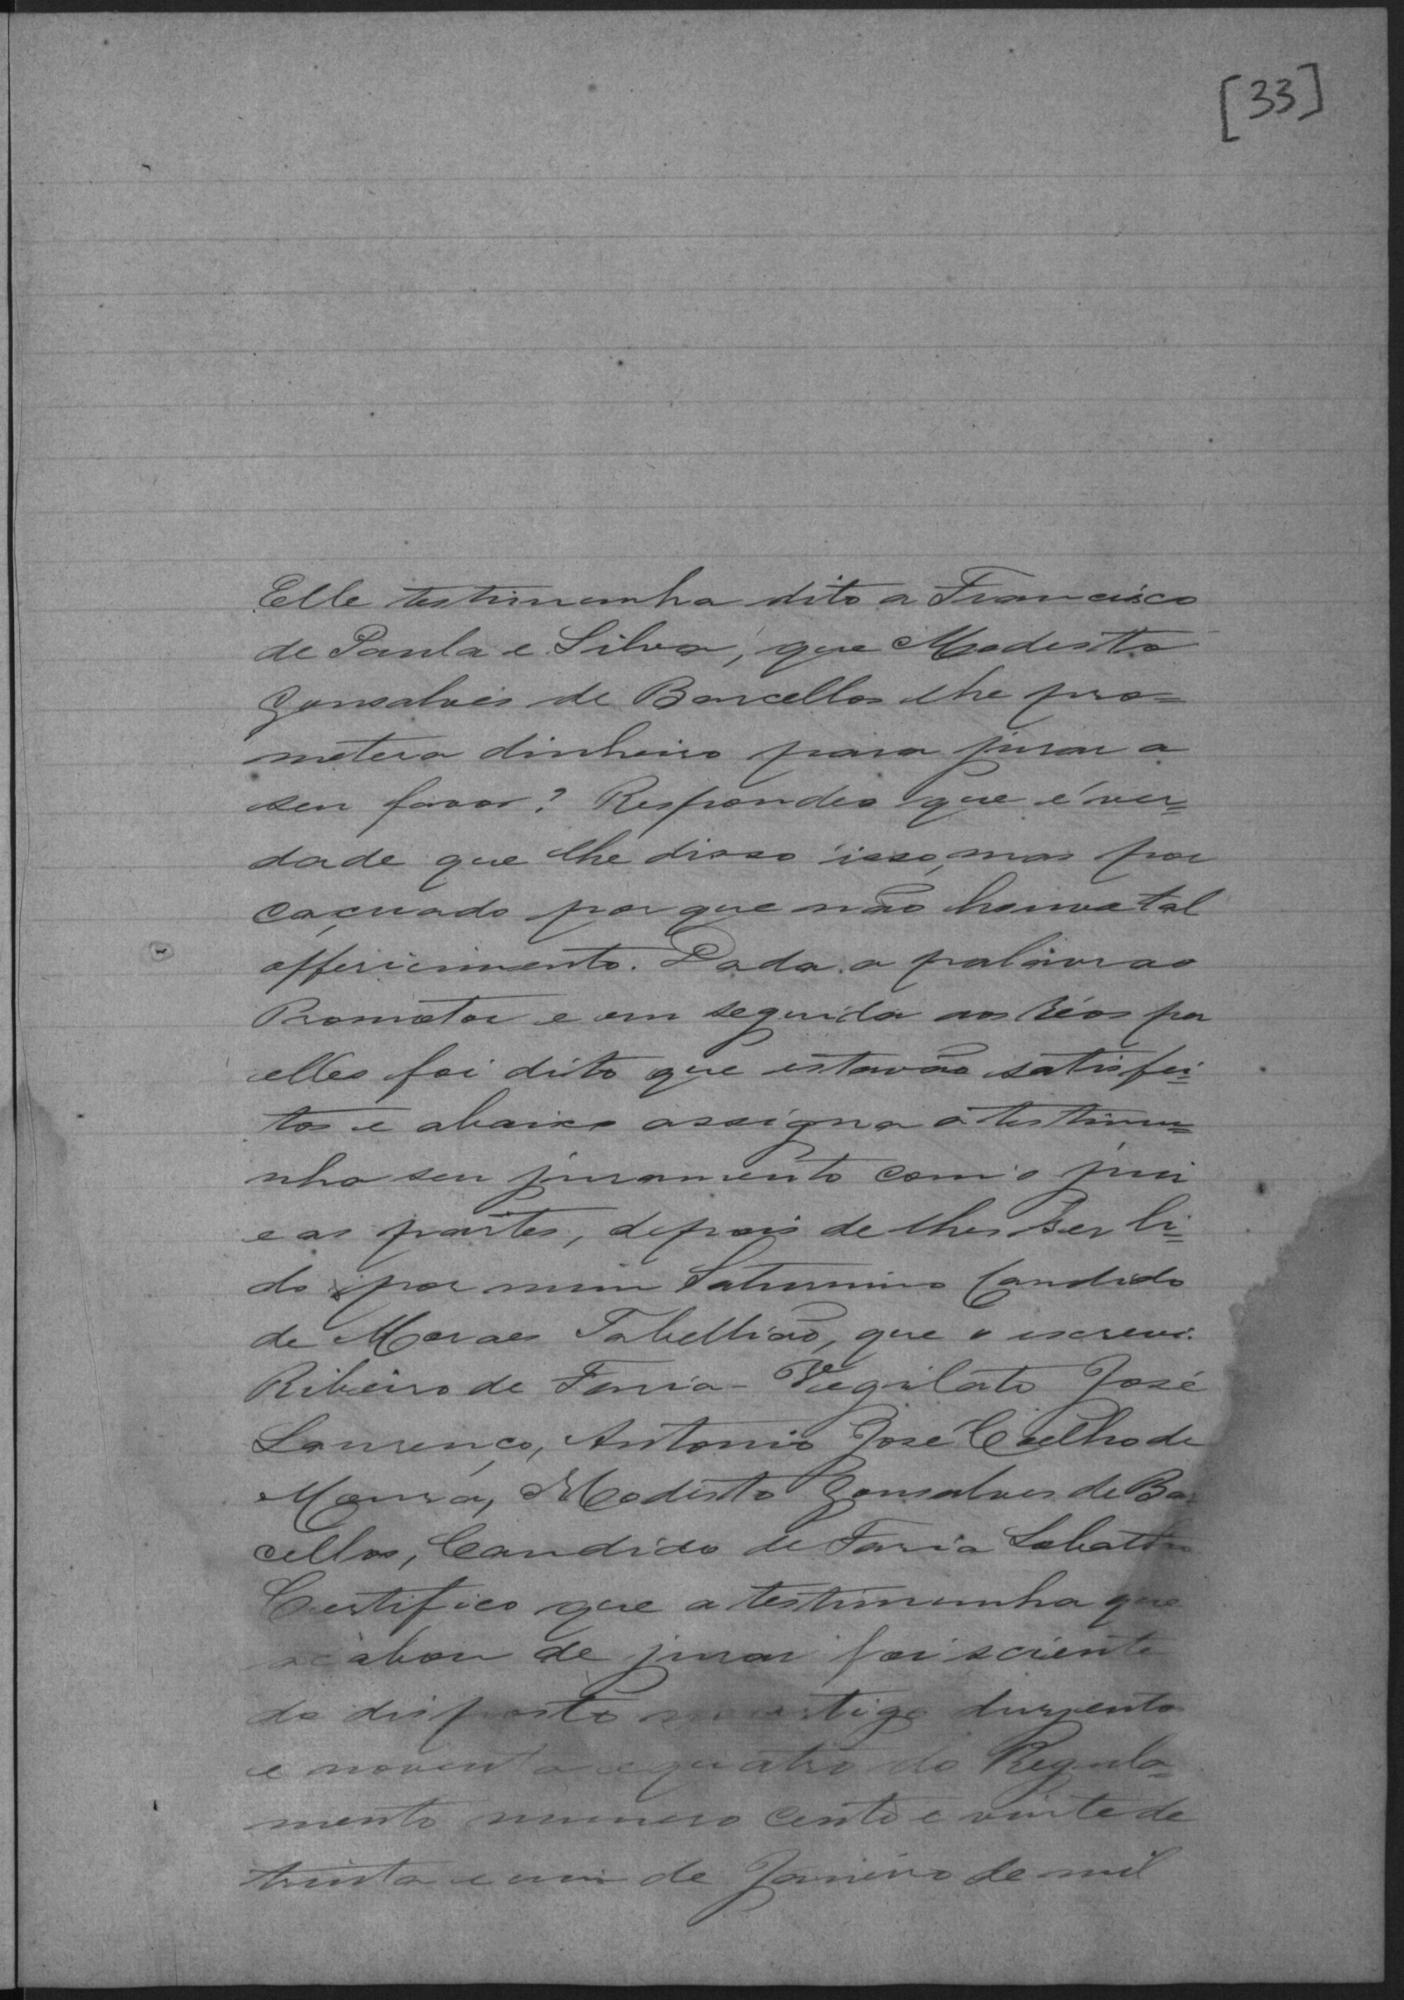 [33]
Elle testimunha dito a Francisco
de Paula e Silva, que Modesto
Gonsalves de Barcellos lhe pro=
metera dinheiro para jurar a
seu favor? Respondeo que é ver=
dade que lhe disse isso, mas por
caçuado por que não houve tal
offericimento. Dada a palavra ao
Promotor e em seguida aos réos por
elles foi dito que estavão satisfei=
tos e abaixo assigna a testimu=
nha seu juramento com o juiz
e as partes, depois de lhes ser li=
do por mim Saturnino Candido
de Moraes Tabellião, que o escrevi.
Ribeiro de Faria - Vigilato José
Lourenço, Antonio José Coelho de
Moura, Modesto Gonsalves de Bar
cellos, Candido de Faria Lobato
Certifico que a testimunha que
acabou de jurar foi sciente
do disposto no artigo duzentos
e noventa e quatro do Regula=
mento numero cento e vinte de
trinta e um de Janeiro de mil